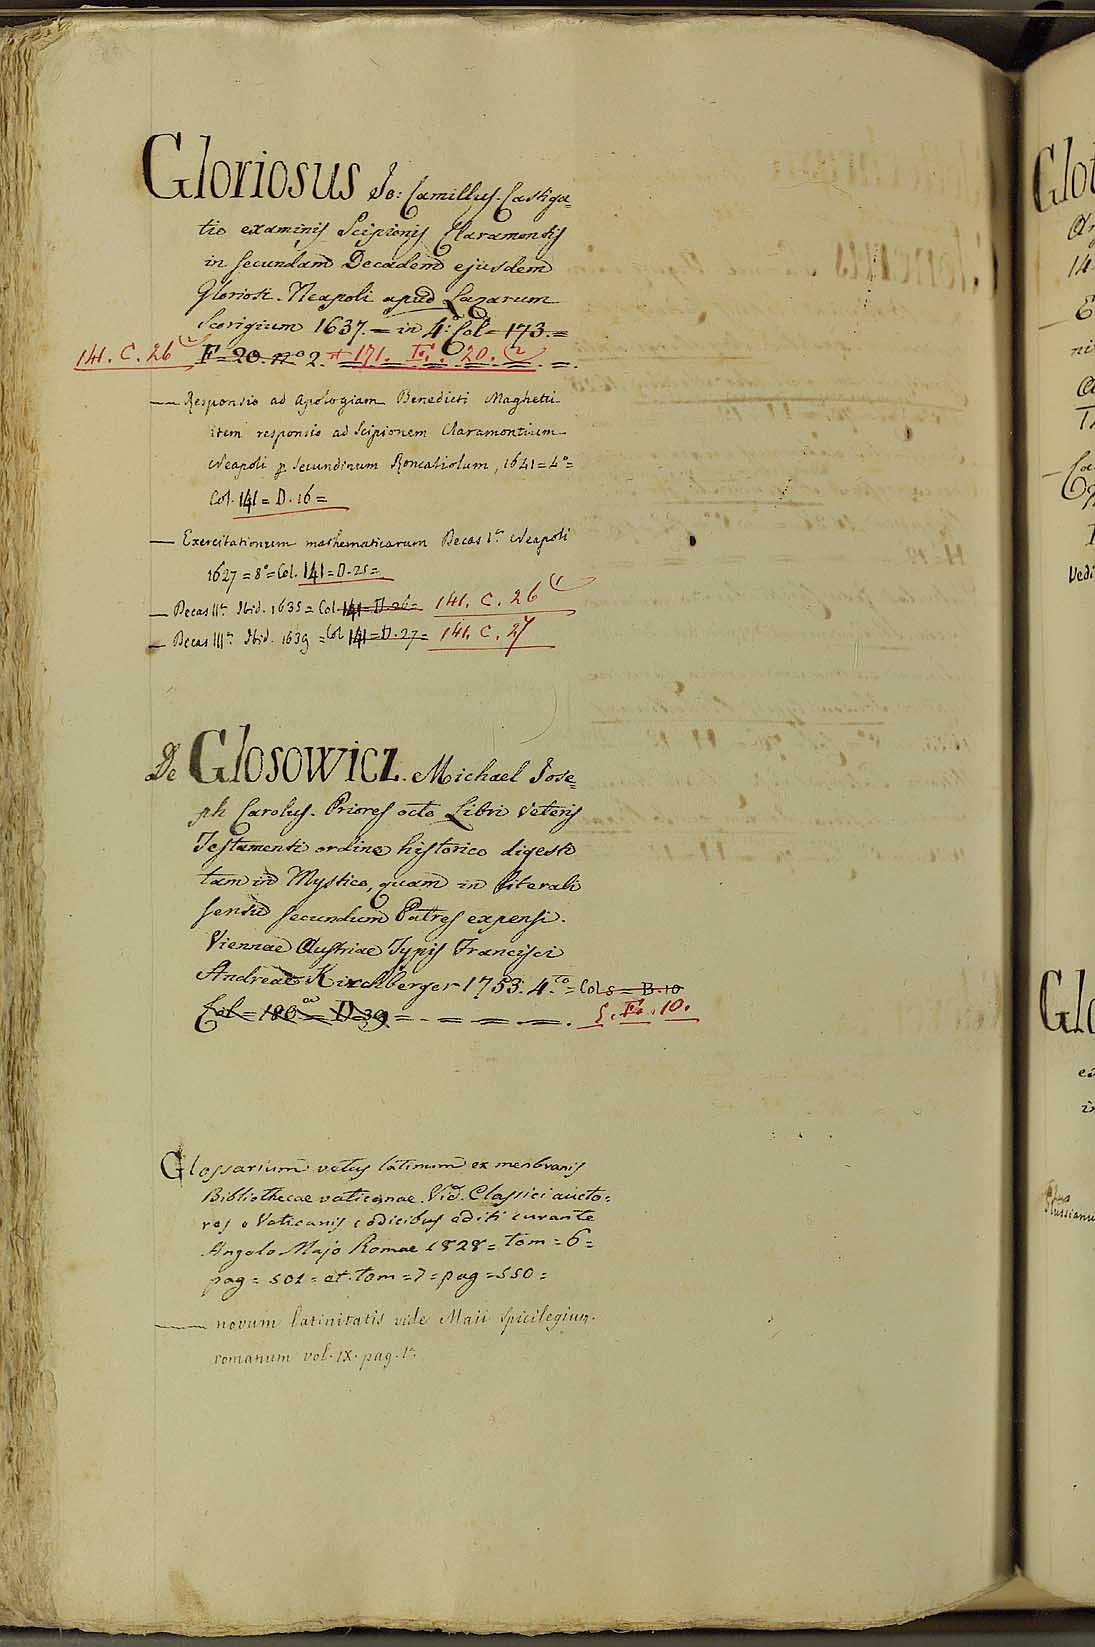 Gloriosus Jo: Camillus. Castiga=
tio examinis Scipionis Claramontis
in secundam Decadem ejusdem
Gloriosi. Neapoli apud Lazarum
Scorigium 1637. = in 4.º Col = 173. =
141. C. 26 (2 F = 20. nº 2. 171. F. 20. (2
— Responsio ad Apologiam Benedicti Maghetii
item responsio ad Scipionem Claramontium
Neapoli p Secundinum Roncaliolum, 1641 = 4º =
Col. 141 = D. 16 =
— Exercitationum mathematicarum Decas 1ª Neapoli
1627 = 8º = Col. 141 = D. 25 =
— Decas IIª Ibid. 1635 = Col 141 = D. 26 = 141. C. 26 (1
— Decas IIIª Ibid. 1639 = Col 141 = D. 27 = 141. C. 27
De Glosowicz. Michael Jose=
ph Carolus. Priores octo Libri Veteris
Testamenti ordine historico digesti
tam in Mystico, quam in literali
sensu secundum Patres expensi.
Viennae Austriae Typis Francisci
Andreae Kirchberger 1753. 4.to = Col 5 = B. 10
Col = 180 = D = 39 = 5. F. 10.
Glossarium vetus latinum ex menbranis
Bibliothecae vaticanae. Vid. Classici aucto=
res e Vaticanis codicibus editi curante
Angelo Majo Romae 1828 = tom = 6 =
pag = 501 = et tom = 7 = pag = 550 =
— novum latinitatis vide Maii Spicilegium
romanum vol. IX. pag. 1ª
Glo
14
ni
Glo
Vedi